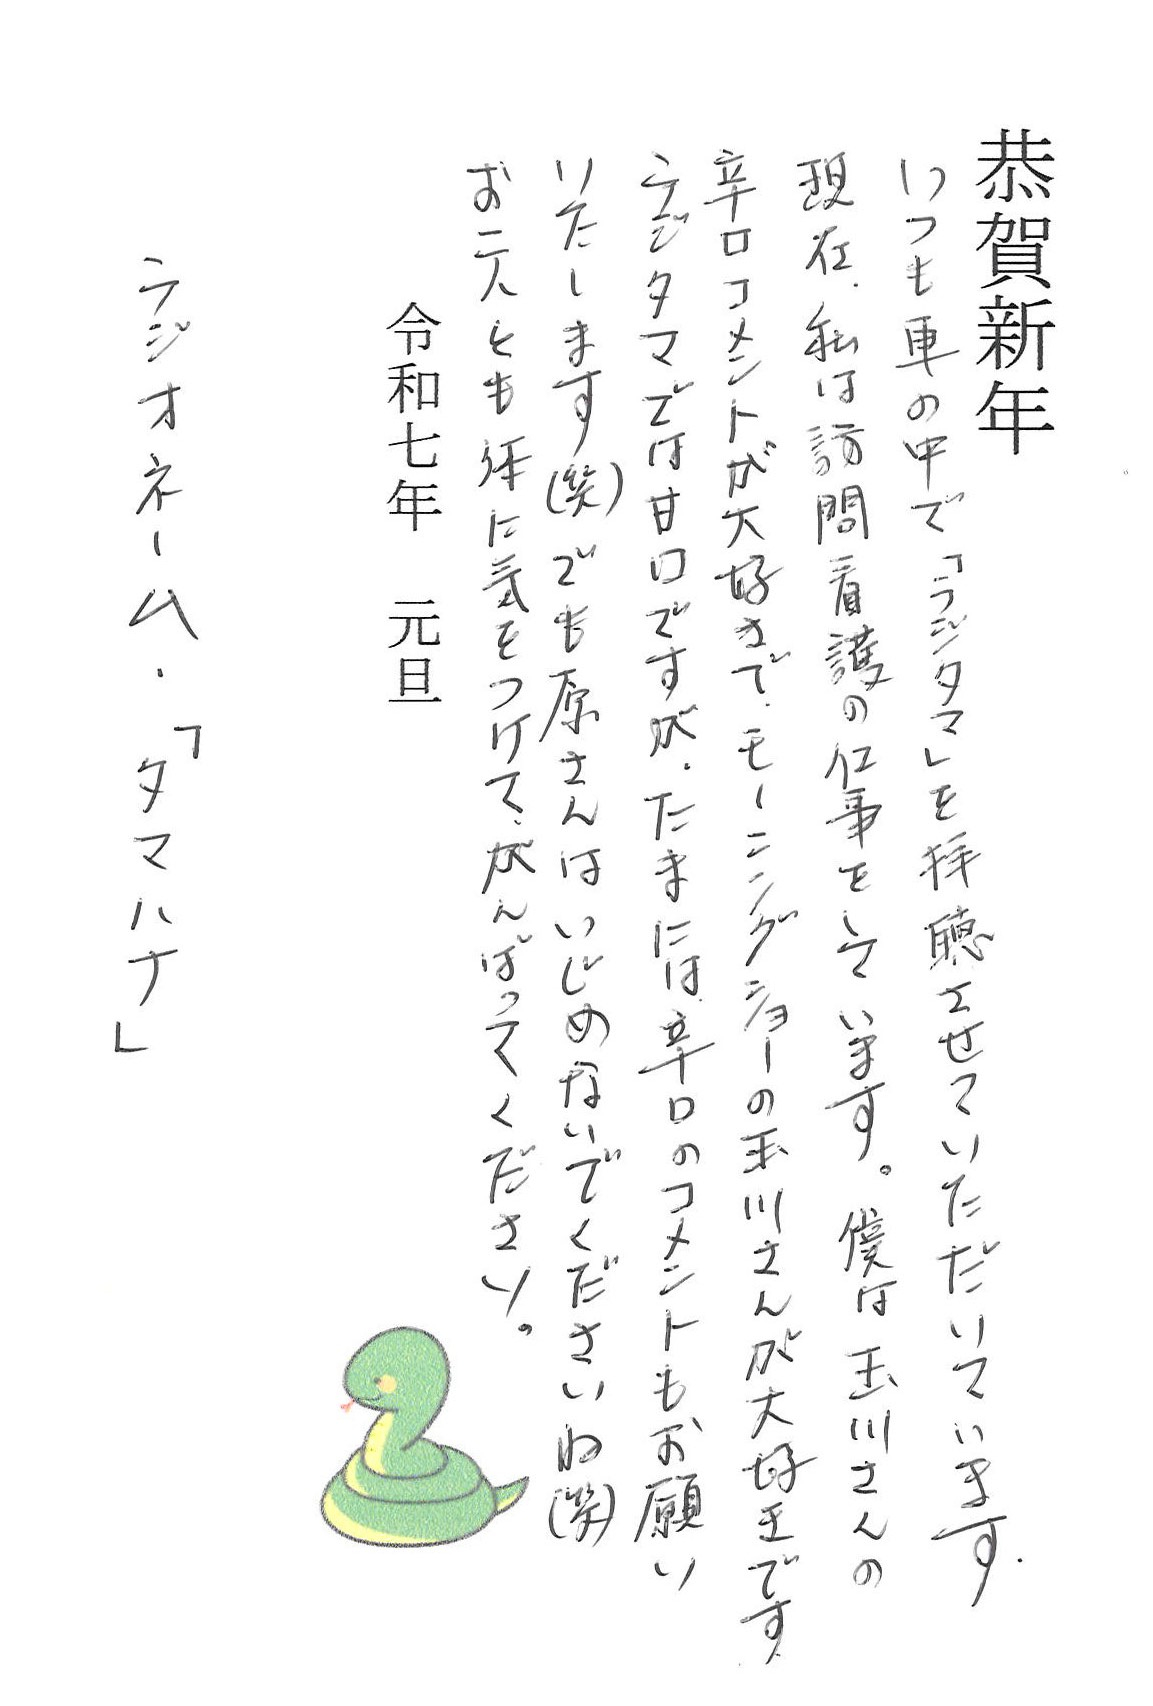 恭賀新年
いつも車の中で「ラジタマ」を拝聴させていただいています.
現在、私は訪問看護の仕事をしています。僕は玉川さんの
辛口コメントが大好きで、モーニングショーの玉川さんが大好きです
ラジタマでは甘口ですが、たまには、辛口のコメントもお願い
いたします(笑)でも原さんはいじめないでくださいね(笑)
お二人とも体に気をつけて、がんばってください。
令和七年 元旦
ラジオネーム・「タマハナ」